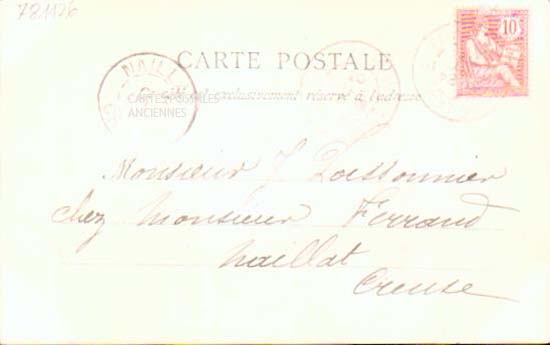 781126
10
NAILL
CARTE POSTALE
CARTES POSTALES
ANCIENNES
Ce côté est exclusivement réservé à l'adresse
Monsieur J
chez Monsieur Ferrand
Naillat
Creuse